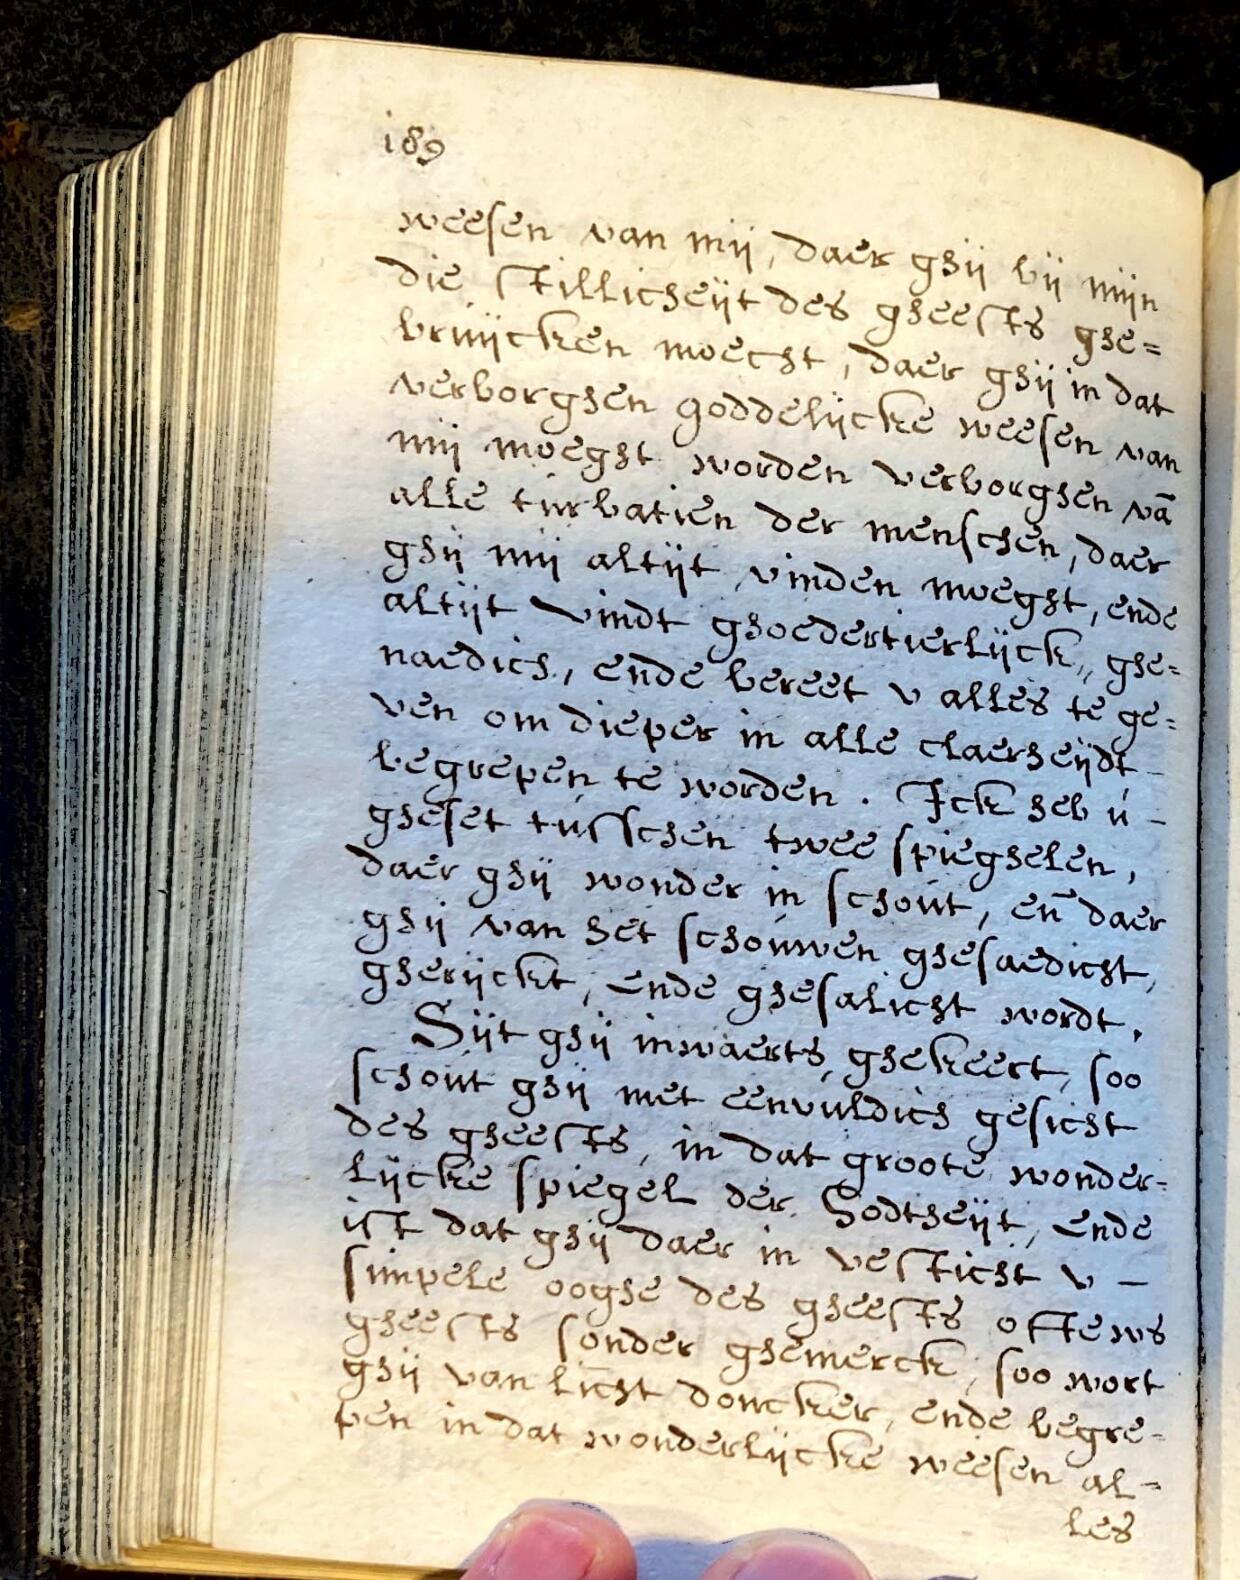 189
weesen van mij, daer ghij bij mijn
die stillicheijt des gheests ghe=
bruijcken moecht, daer ghij in dat
verborghen goddelijcke weesen van
mij moeght worden verborghen vā
alle turbatien der menschen, daer
ghij mij altijt vinden moeght, ende
altijt vindt ghoedertierlijck, ghe=
naedich, ende bereet v alles te ge=
ven om dieper in alle claerheijdt –
begrepen te worden. Ick heb ú –
gheset tusschen twee spieghelen,
daer ghij wonder in schout, en̄ daer
ghij van het schouwen ghesaedicht,
gherijckt, ende ghesalicht wordt.
Sijt ghij inwaerts ghekeert, soo
schout ghij met eenvuldich gesicht
des gheests, in dat groote wonder=
lijcke spiegel der Godtheijt, ende
ist dat ghij daer in vesticht v –
simpele ooghe des gheests oft uws
gheests sonder ghemerck, soo wort
ghij van licht doncker, ende begre=
pen in dat wonderlijcke weesen al=
les